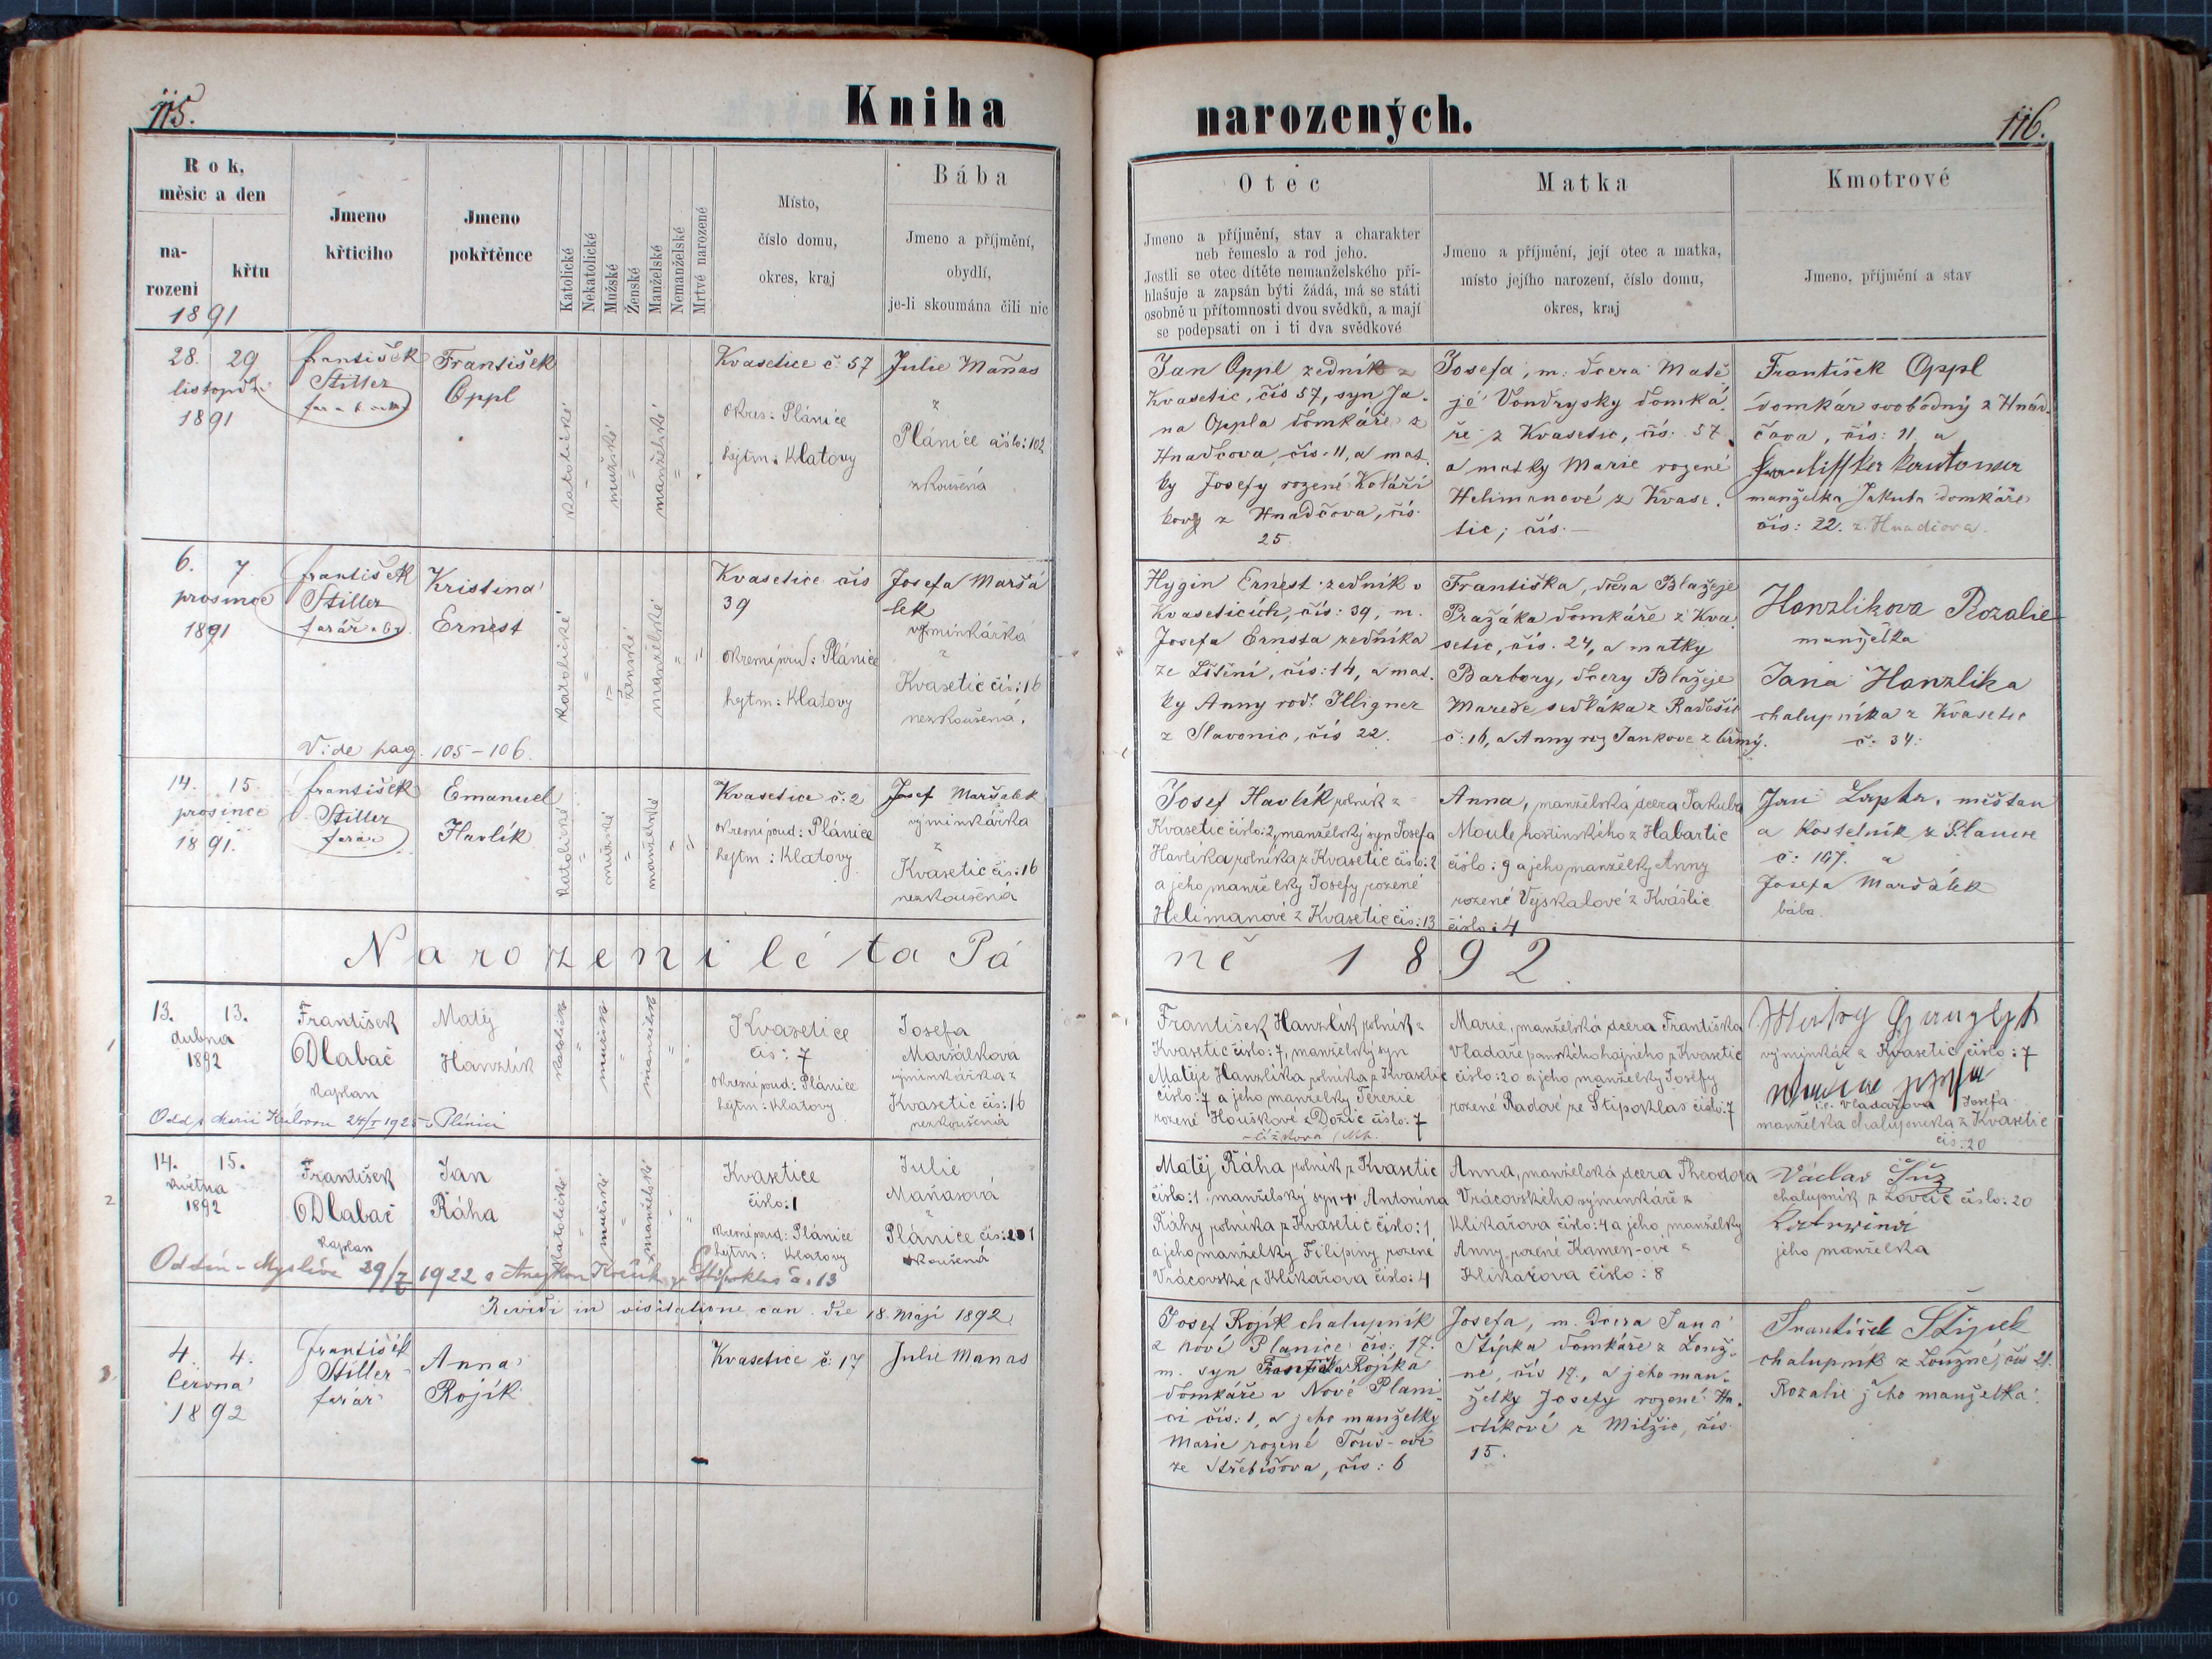 115.
Kniha
Rok,
měsíc a den
na-
rozeni
křtu
1891
Jmeno
křticího
Jmeno
pokřtěnce
Katolické
Nekatolické
Mužské
Ženské
Manželské
Nemanželské
Mrtvé narozené
Místo,
číslo domu,
okres, kraj
Bába
Jmeno a příjmění,
obydlí,
je-li skoumána čili nic
28. 29
listopadu
1891
František
Stiller
František
Oppl
katolické
mužské
manželské
Kvasetice č. 57
okres: Plánice
hejtm: Klatovy
Julie Maňas
z
Plánice číslo: 102
zkoušená
6. 7.
prosince
1891
František
Stiller
farář
Kristina
Ernest
katolické
ženské
manželské
Kvasetice čís
39
okresní soud: Plánice
hejtm: Klatovy
Josefa Maršá
lek
výminkářka
z
Kvasetic čís: 16
nezkoušená.
Vide pag. 105-106.
14. 15.
prosince
1891.
František
Stiller
farář
Emanuel
Havlík
katolické
mužské
manželské
Kvasetice č. 2
okresní soud: Plánice
hejtm: Klatovy
Josef Maršalek
výminkářka
z
Kvasetic čís: 16
nezkoušená
Narozeni léta Pá
13. 13.
dubna
1892
František
Dlabač
kaplan
Matěj
Hanzlík
Kvasetice
čís: 7
okresní soud: Plánice
hejtm: Klatovy
Josefa
Maršálková
výminkářka z
Kvasetic čís: 16
nezkoušená
14. 15.
května
1892
František
Dlabač
kaplan
Jan
Ráha
katolické
mužské
manželské
Kvasetice
číslo: 1
okresní soud: Plánice
hejtm: Klatovy
Julie
Maňasová
z
Plánice
zkoušená
29/7 1922
Revidi in visitatione can. die 18. Maji 1892.
4. 4.
června
1892
František
Stiller
farář
Anna
Rojík
Kvasetice č: 17
Julie Manas
narozených.
116.
Otec
Jmeno a příjmění, stav a charakter
neb řemeslo a rod jeho.
Jestli se otec dítěte nemanželského při-
hlašuje a zapsán býti žádá, má se státi
osobně u přítomnosti dvou svědků, a mají
se podepsati on i ti dva svědkové
Matka
Jmeno a příjmění, její otec a matka,
místo jejího narození, číslo domu,
okres, kraj
Kmotrové
Jmeno, příjmění a stav
Jan Oppl zedník z
Kvasetic, čís 57, syn Ja-
na Oppla domkáře z
Hnadčova, čís. 11, a mat.
ky Josefy rozené Kolaří
kovy z Hnadčova, čís.
25.
Josefa, m. dcera Matě
je Vondrysky domká
ře z Kvasetic, čís: 57
a matky Marie rozené
Helimanové z Kvase.
tic, čís. —
František Oppl
domkář svobodný z Hnad.
čova, čís: 11, a
manželka Jakuba domkáře
čís: 22. z Hnadčova.
Hygin Ernest zedník v
Kvaseticích, čís: 39, m.
Josefa Ernsta zedníka
ze Lštění, čís: 14, a mat.
ky Anny roď. Illigner
z Slavonic, čís 22.
Františka, dcera Blažeje
Pražáka domkáře z Kva
setic, čís. 24, a matky
Barbory, dcery Blažeje
Mareše sedláka z
č: 16, a Anny roz Jankove z
Hanzlikova Rozalie
manželka
Jana Hanzlika
chalupníka z Kvasetic
č. 34.
Josef Havlík rolník z
Kvasetic číslo: 2, manželský syn Josefa
Havlíka rolníka z Kvasetic číslo: 2
a jeho manželky Josefy rozené
Helimanové z Kvasetic čís: 13
Anna, manželská dcera Jakuba
Moule hostinského z Habartic
číslo: 9 a jeho manželky Anny
rozené Výskalové z Kváslic
číslo: 4
Jan
a kostelník z Planice
č: 167. a
Josefa Maršálek
bába.
ně 1892.
František Hanzlík rolník z
Kvasetic číslo: 7, manželský syn
Matěje Hanzlíka rolníka z Kvasetic
číslo: 7 a jeho manželky Terezie
rozené Houškové z Dožic číslo: 7
Marie, manželská dcera Františka
Vladaře panského hajného z Kvasetic
číslo: 20 a jeho manželky Josefy
rozené Radové ze Štipoklas číslo: 7
výminkář z Kvasetic číslo: 7
i.e. Vladařova Josefa
manželka chalupníka z Kvasetic
čís: 20
Matěj Ráha rolník z Kvasetic
číslo: 1 manželský syn + Antonína
Ráhy rolníka z Kvasetic číslo: 1
a jeho manželky Filipiny rozené
Vrácovské z Klikařova číslo: 4
Anna, manželská dcera Theodora
Vrácovského výminkáře z
Klikařova číslo: 4 a jeho manželky
Anny rozené Kamen-ové z
Klikařova číslo: 8
Václav
chalupník z Lovčic číslo: 20
jeho manželka
Josef Rojík chalupník
z nové Planice čís: 17.
m. syn Františka Rojíka
domkáře v Nové Plani
ci čís: 1, a jeho manželky
Marie rozené
ze Střebišova, čís: 6
Josefa, m. Dcera Jana
Štípka domkáře z Louž-
né, čís 17., a jeho man-
želky Josefy rozené
z Milžic, čís.
15.
František Štípek
chalupník z Loužné, čís 21.
Rozalie jeho manželka.